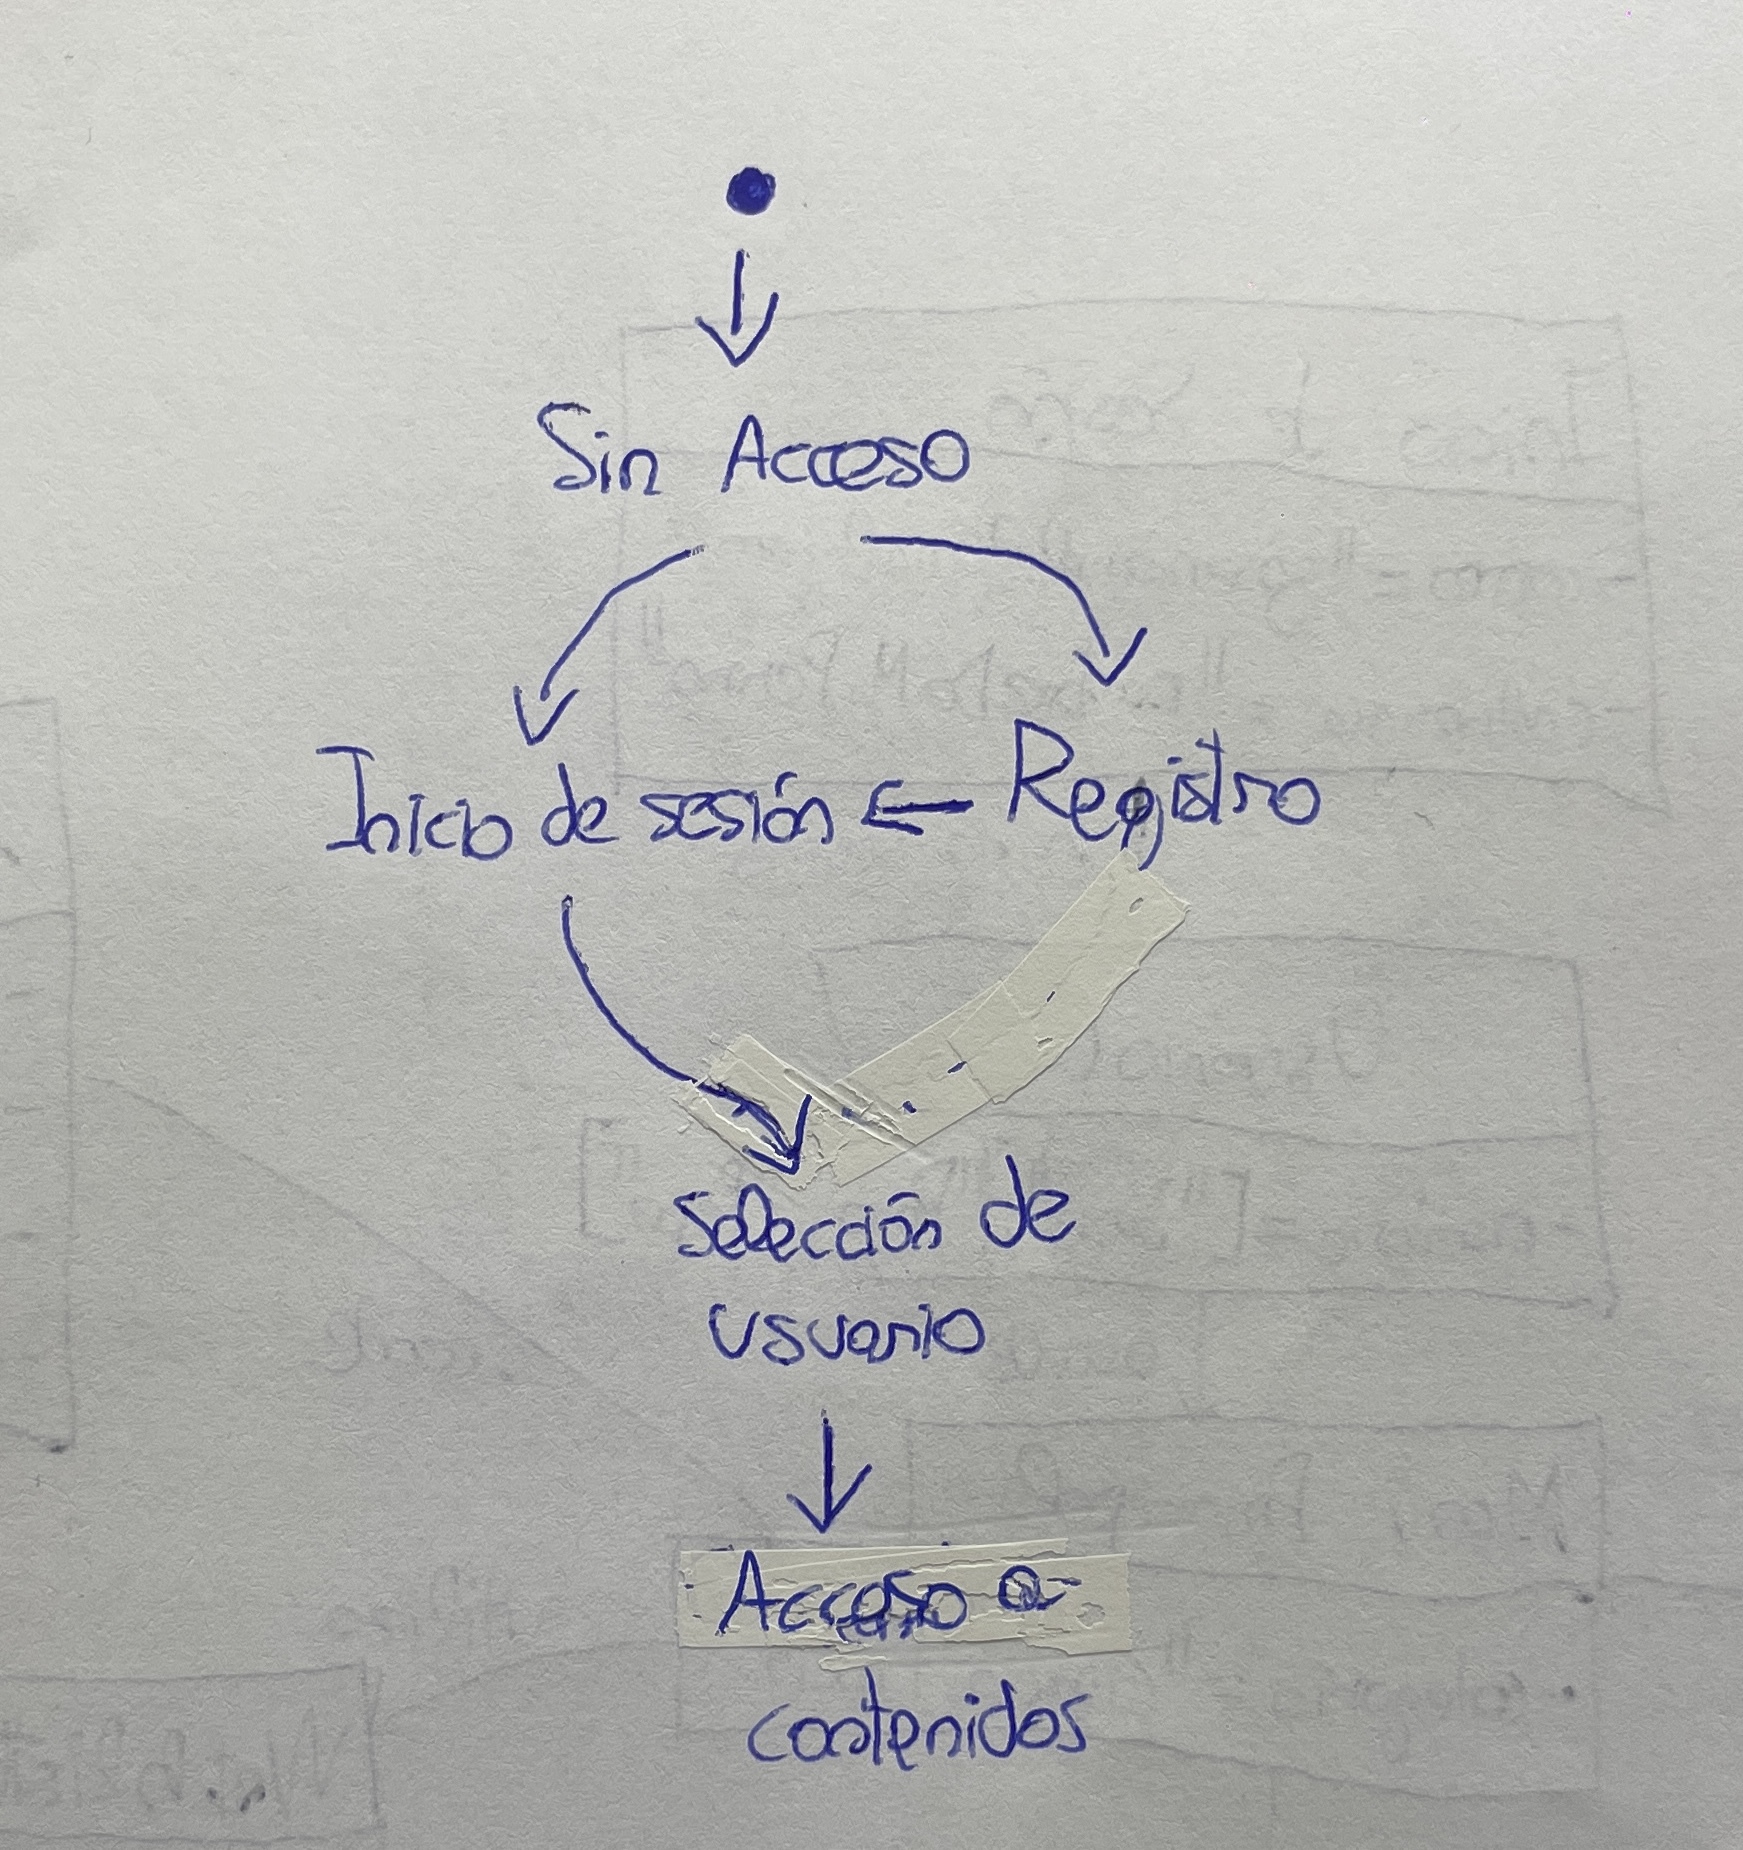 Sin Acceso
Inicio de sesión ← Registro
Selección de
usuario
Acceso a
contenidos